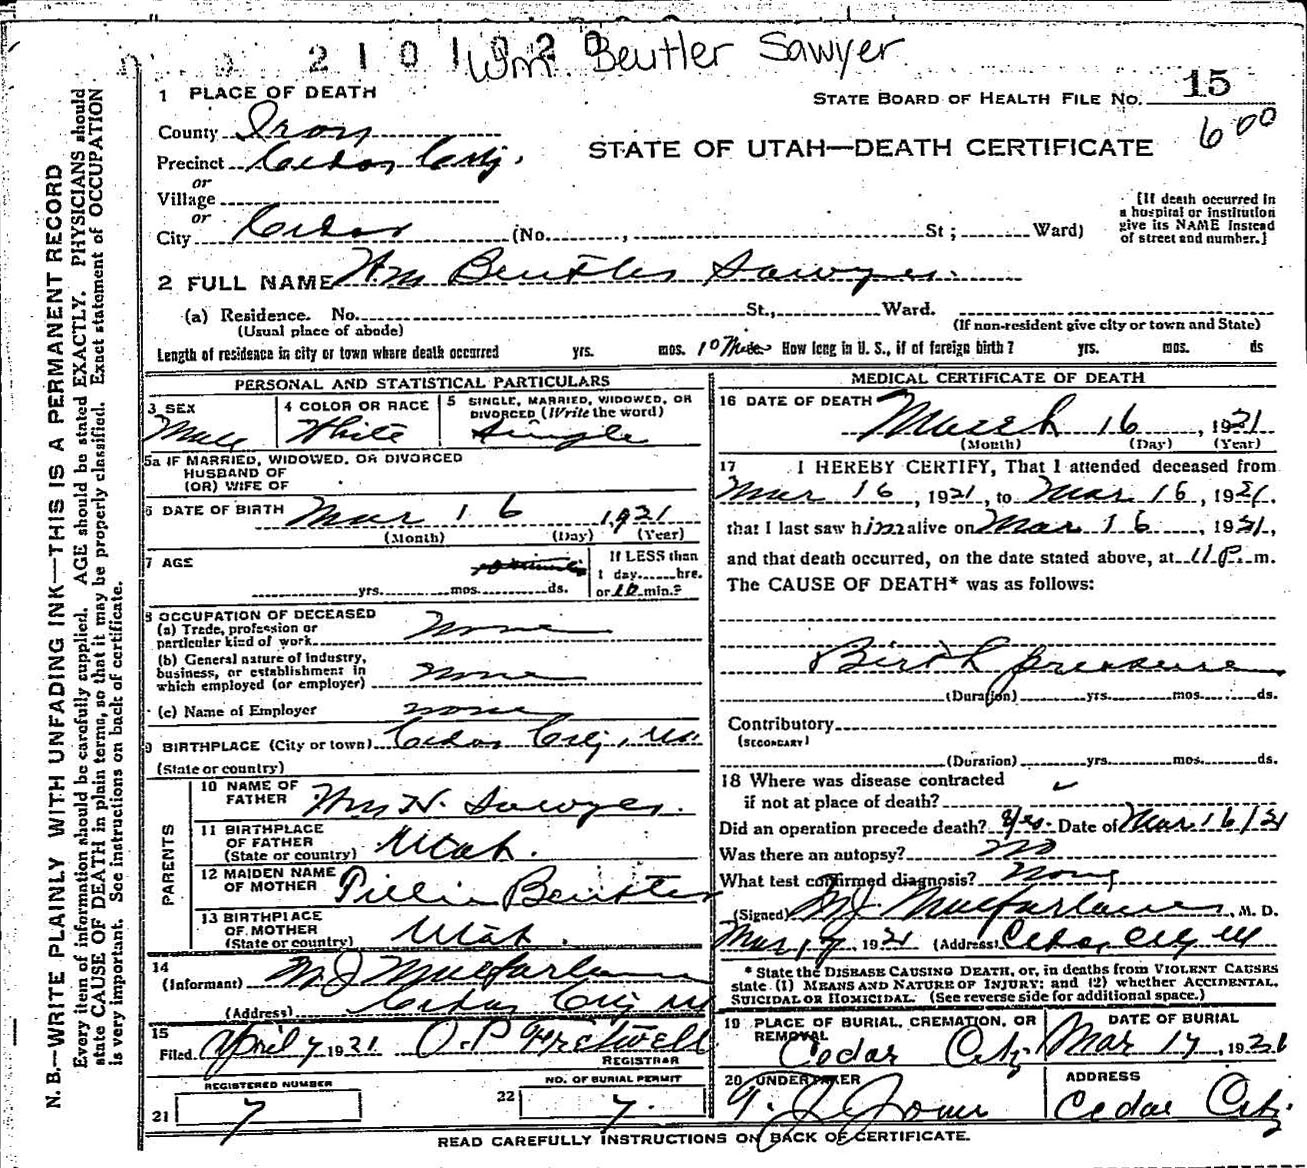 2 1 0 1 9 2 0
Wm. Beutler Sawyer
1 PLACE OF DEATH
STATE BOARD OF HEALTH FILE No. 15
600
County Iron
STATE OF UTAH—DEATH CERTIFICATE
Precinct Cedar City.
or
Village
or
City Cedar (No. , St ; Ward)
[If death occurred in
a hospital or institution
give its NAME instead
of street and number.]
2 FULL NAME Wm Beutler Sawyer.
(a) Residence. No. St., Ward.
(Usual place of abode)
(If non-resident give city or town and State)
Length of residence in city or town where death occurred yrs. mos. 10 Min How long in U. S., if of foreign birth? yrs. mos. ds
PERSONAL AND STATISTICAL PARTICULARS
3 SEX
Male
4 COLOR OR RACE
White
5 SINGLE, MARRIED, WIDOWED, OR
DIVORCED (Write the word)
Single
5a IF MARRIED, WIDOWED, OR DIVORCED
HUSBAND OF
(OR) WIFE OF
6 DATE OF BIRTH Mar 16 1921
(Month) (Day) (Year)
7 AGE
yrs. mos. ds.
If LESS than
1 day hrs.
or 10 min.?
8 OCCUPATION OF DECEASED
(a) Trade, profession or
particular kind of work None
(b) General nature of industry,
business, or establishment in
which employed (or employer) None
(c) Name of Employer none
9 BIRTHPLACE (City or town) Cedar City, Ut.
(State or country)
PARENTS
10 NAME OF
FATHER Wm H. Sawyer.
11 BIRTHPLACE
OF FATHER
(State or country) Utah.
12 MAIDEN NAME
OF MOTHER Lillie Beutler
13 BIRTHPLACE
OF MOTHER
(State or country) Utah.
14
(Informant) M J Macfarlane
(Address) Cedar City Ut
15
Filed April 7 1921 O. P. Fretwell
REGISTRAR
REGISTERED NUMBER
21 7
NO. OF BURIAL PERMIT
22 7.
MEDICAL CERTIFICATE OF DEATH
16 DATE OF DEATH March 16, 1921
(Month) (Day) (Year)
17 I HEREBY CERTIFY, That I attended deceased from
Mar 16, 1921, to Mar 16, 1921,
that I last saw him alive on Mar 16, 1921,
and that death occurred, on the date stated above, at 11 P. m.
The CAUSE OF DEATH* was as follows:
Birth pressure
(Duration) yrs. mos. ds.
Contributory
(SECONDARY)
(Duration) yrs. mos. ds.
18 Where was disease contracted
if not at place of death? ✓
Did an operation precede death? Yes. Date of Mar 16/21
Was there an autopsy? No
What test confirmed diagnosis? None
(Signed) M J Macfarlane, M. D.
Mar 17, 1921 (Address) Cedar City Ut
* State the DISEASE CAUSING DEATH, or, in deaths from VIOLENT CAUSES
state (1) MEANS AND NATURE OF INJURY; and (2) whether ACCIDENTAL,
SUICIDAL OR HOMICIDAL. (See reverse side for additional space.)
19 PLACE OF BURIAL, CREMATION, OR
REMOVAL
Cedar City
DATE OF BURIAL
Mar 17, 1921
20 UNDERTAKER
T. J. Jones
ADDRESS
Cedar City.
READ CAREFULLY INSTRUCTIONS ON BACK OF CERTIFICATE.
N. B.—WRITE PLAINLY WITH UNFADING INK—THIS IS A PERMANENT RECORD
Every item of information should be carefully supplied. AGE should be stated EXACTLY. PHYSICIANS should
state CAUSE OF DEATH in plain terms, so that it may be properly classified. Exact statement of OCCUPATION
is very important. See instructions on back of certificate.